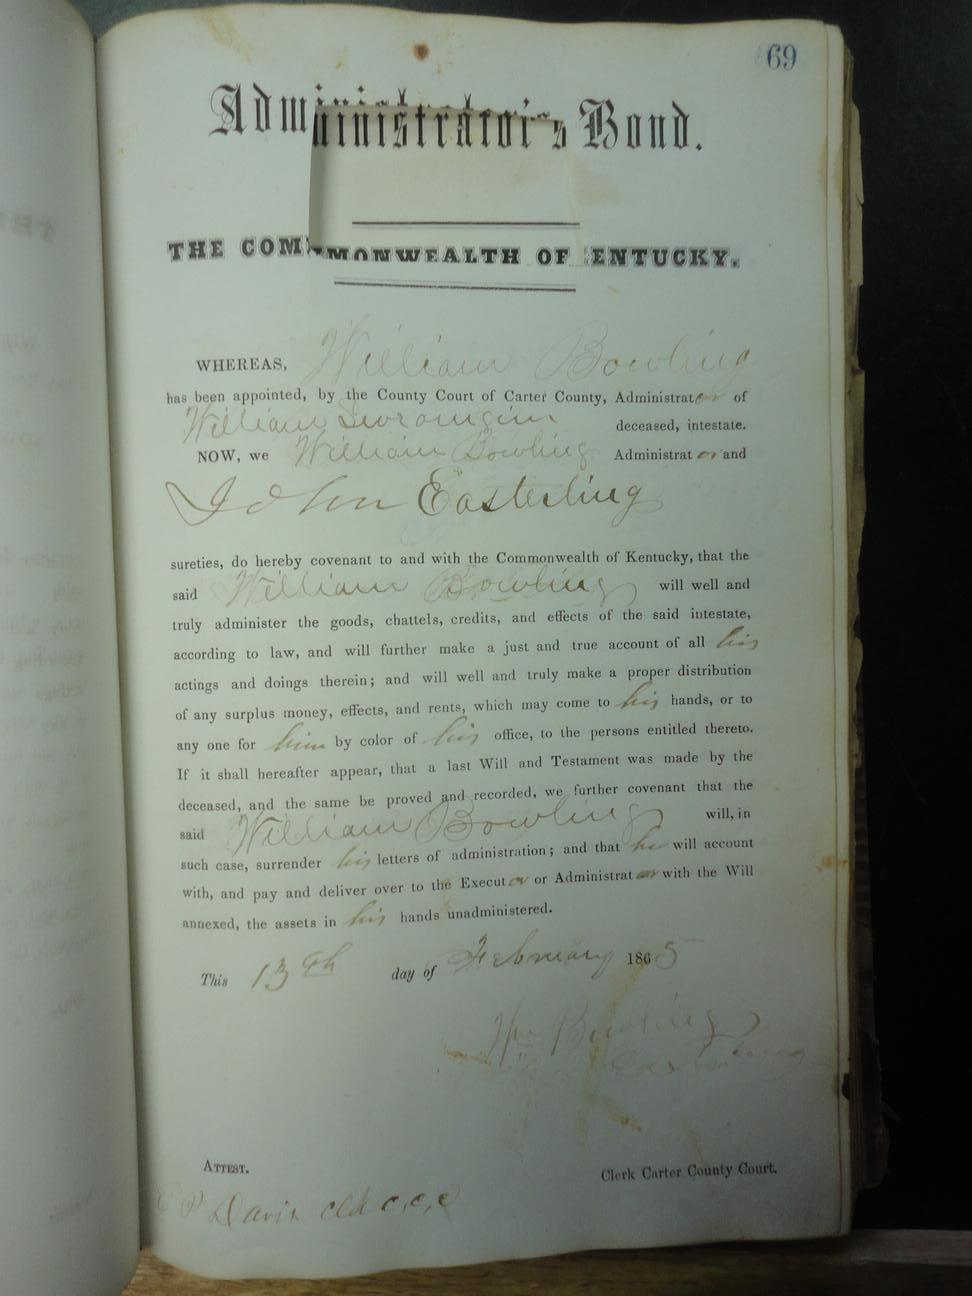 69
Administrator's Bond.
THE COMMONWEALTH OF KENTUCKY.
WHEREAS, William Bowling
has been appointed, by the County Court of Carter County, Administrator of
William deceased, intestate.
NOW, we William Bowling Administrator and
John Easterling
sureties, do hereby covenant to and with the Commonwealth of Kentucky, that the
said William Bowling will well and
truly administer the goods, chattels, credits, and effects of the said intestate,
according to law, and will further make a just and true account of all his
actings and doings therein; and will well and truly make a proper distribution
of any surplus money, effects, and rents, which may come to his hands, or to
any one for him by color of his office, to the persons entitled thereto.
If it shall hereafter appear, that a last Will and Testament was made by the
deceased, and the same be proved and recorded, we further covenant that the
said William Bowling will, in
such case, surrender his letters of administration; and that he will account
with, and pay and deliver over to the Executor or Administrator with the Will
annexed, the assets in his hands unadministered.
This 13th day of February 1865
Wm Bowling
Easterling
ATTEST.
Clerk Carter County Court.
Davis Clk C.C.C